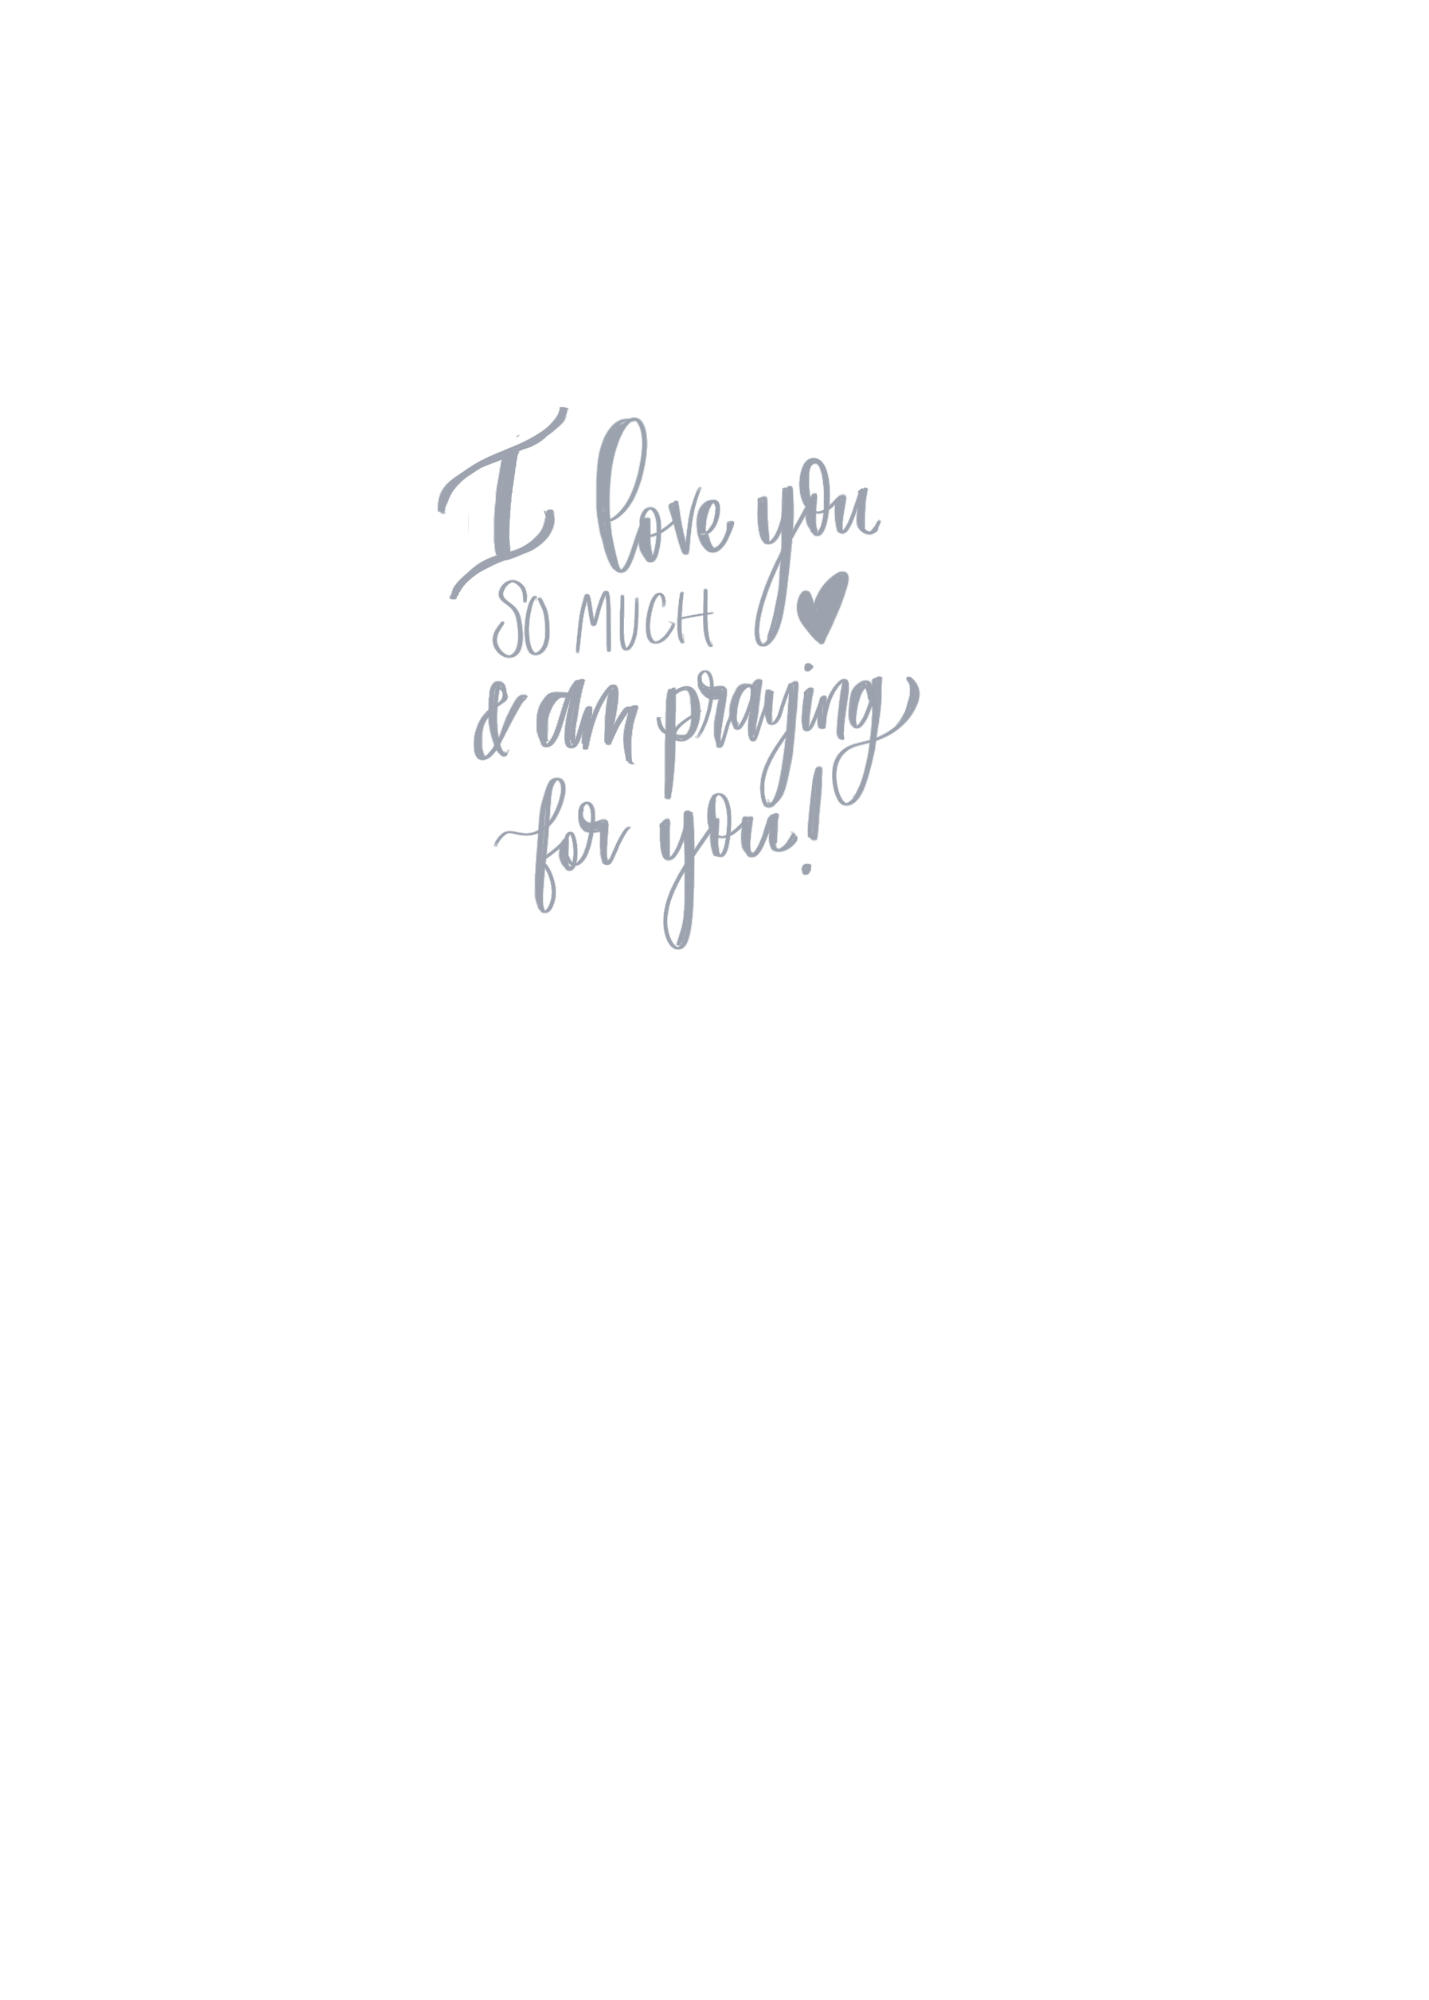 I love you
SO MUCH
& am praying
for you!